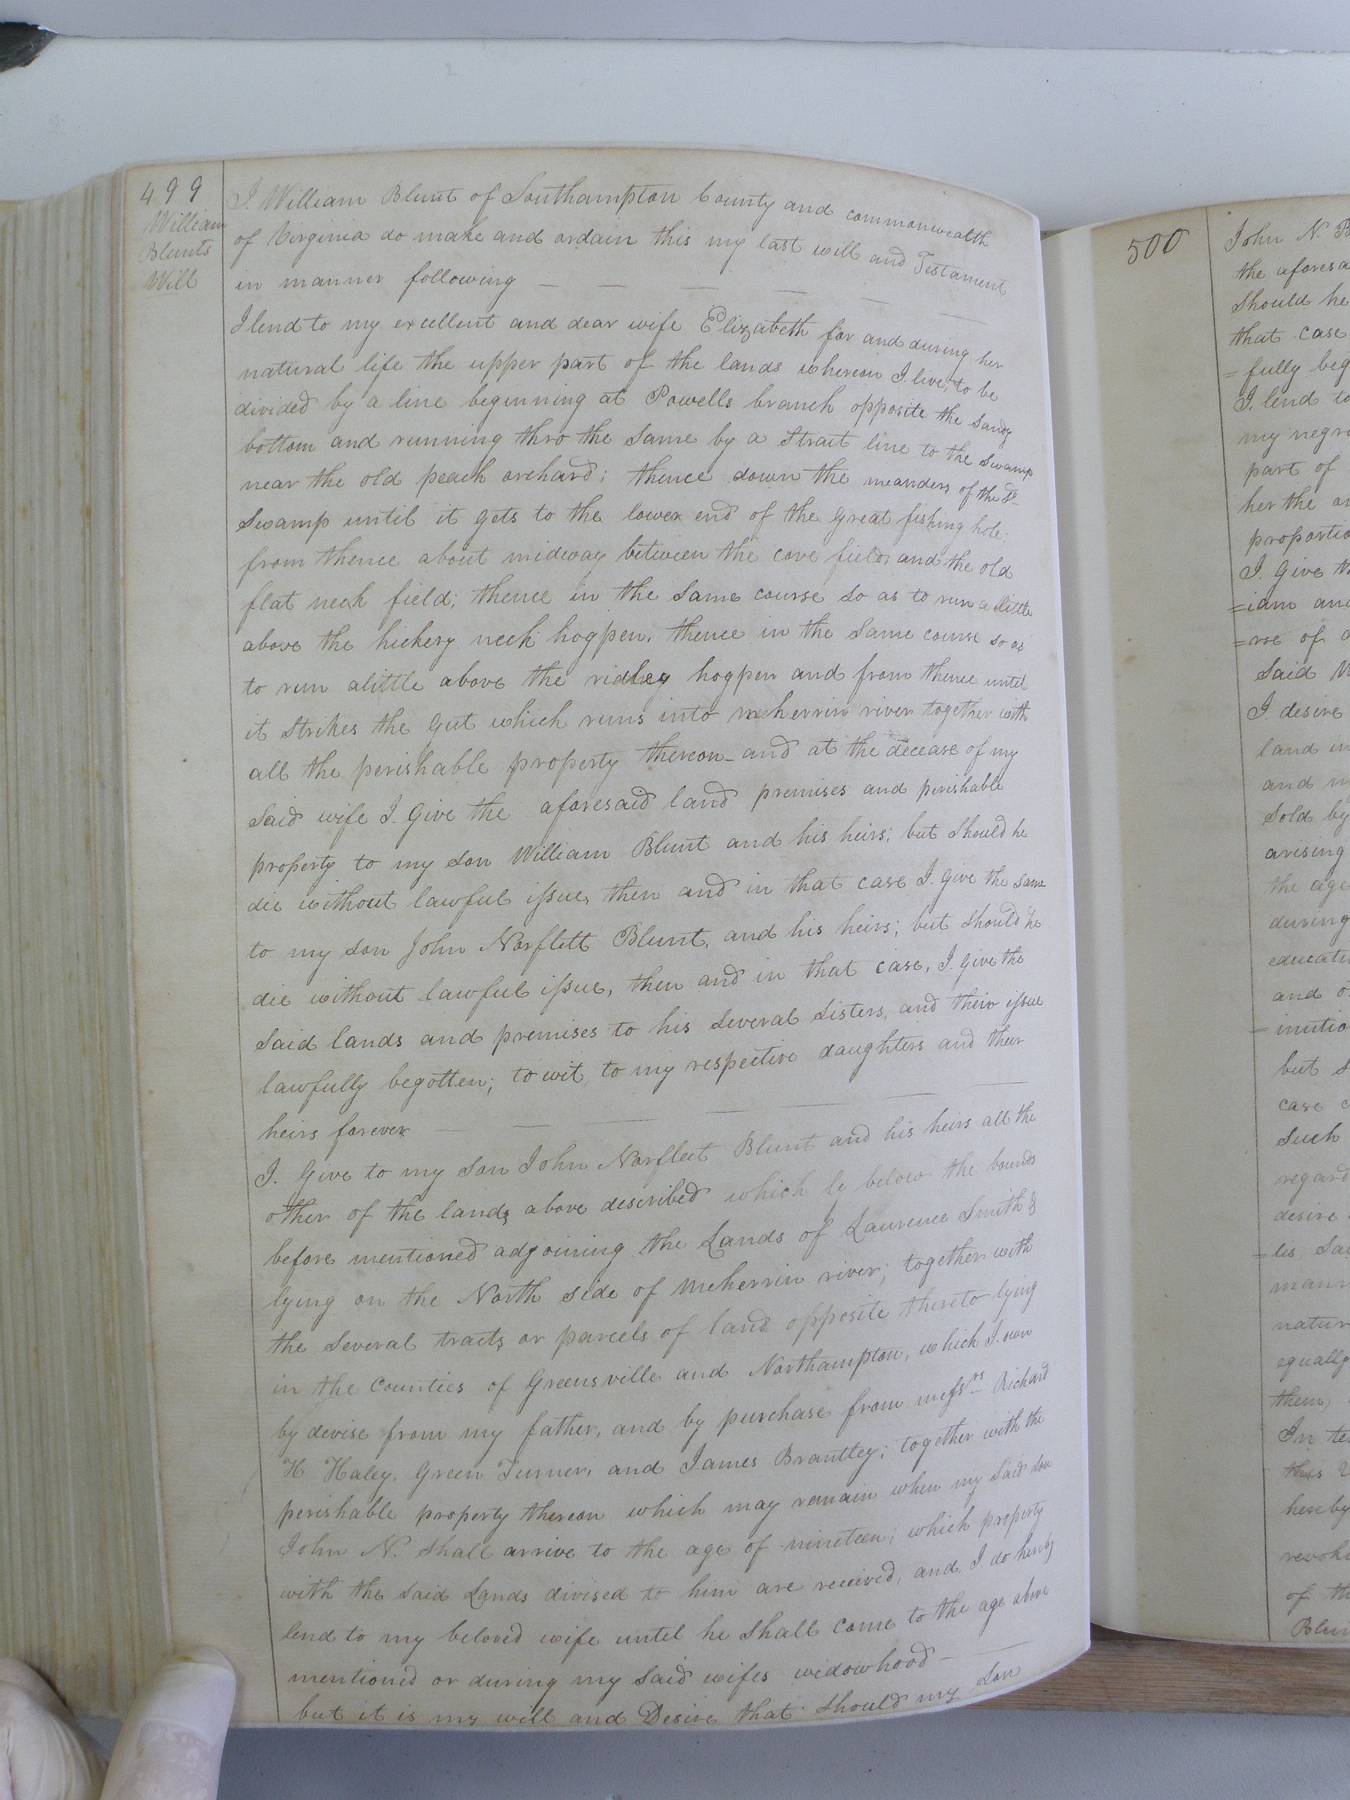 499
William
Blunts
Will
I. William Blunt of Southampton County and commonwealth
of Virginia do make and ordain this my last will and Testament
in manner following
I lend to my excellent and dear wife Elizabeth for and during her
natural life the upper part of the lands wherein I. live, to be
divided by a line beginning at Powells branch opposite the Sandy
bottom and running thro the same by a Strait line to the Swamp
near the old peach orchard; thence down the meanders of the Sd
Swamp until it gets to the lower end of the great fishing hole;
from thence about midway between the cove field and the old
flat neck field; thence in the same course so as to run a little
above the hickery neck hogpen, thence in the same course so as
to run alittle above the ridley hogpen and from thence until
it Strikes the Gut which runs into meherrin river together with
all the perishable property thereon and at the decease of my
said wife I. Give the aforesaid land premises and perishable
property to my son William Blunt and his heirs; but should he
die without lawful issue, then and in that case I. Give the same
to my son John Norflett Blunt, and his heirs; but should he
die without lawful issue, then and in that case, I. give the
said lands and premises to his several Sisters, and their issue
lawfully begotten; to wit, to my respective daughters and their
heirs forever
I. Give to my son John Norfleet Blunt and his heirs all the
other of the lands above described which le below the bounds
before mentioned adjoining the Lands of Laurence Smith &
lying on the North side of meherrin river; together with
the several tracts or parcels of land opposite thereto lying
in the counties of Greensville and Northampton, which I. own
by devise from my father, and by purchase from messrs Richard
H Haley, Green Turner, and James Brantley; together with the
perishable property thereon which may remain when my Said son
John N. shall arrive to the age of nineteen; which property
with the said Lands divised to him are received, and I. do hereby
lend to my beloved wife until he shall come to the age above
mentioned or during my said wifes widowhood
but it is my will and Desire that should my son
500
John N. B
the aforesa
should he
that case
= fully beg
I. lend to
my negro
part of
her the
proportio
I. Give th
=iam and
of
said
I. desire
land in
and
sold by
arising
the age
during
educati
and
but
case
such
regard
desire
manner
natur
equally
them,
In te
this
hereby
revoki
of th
Blun